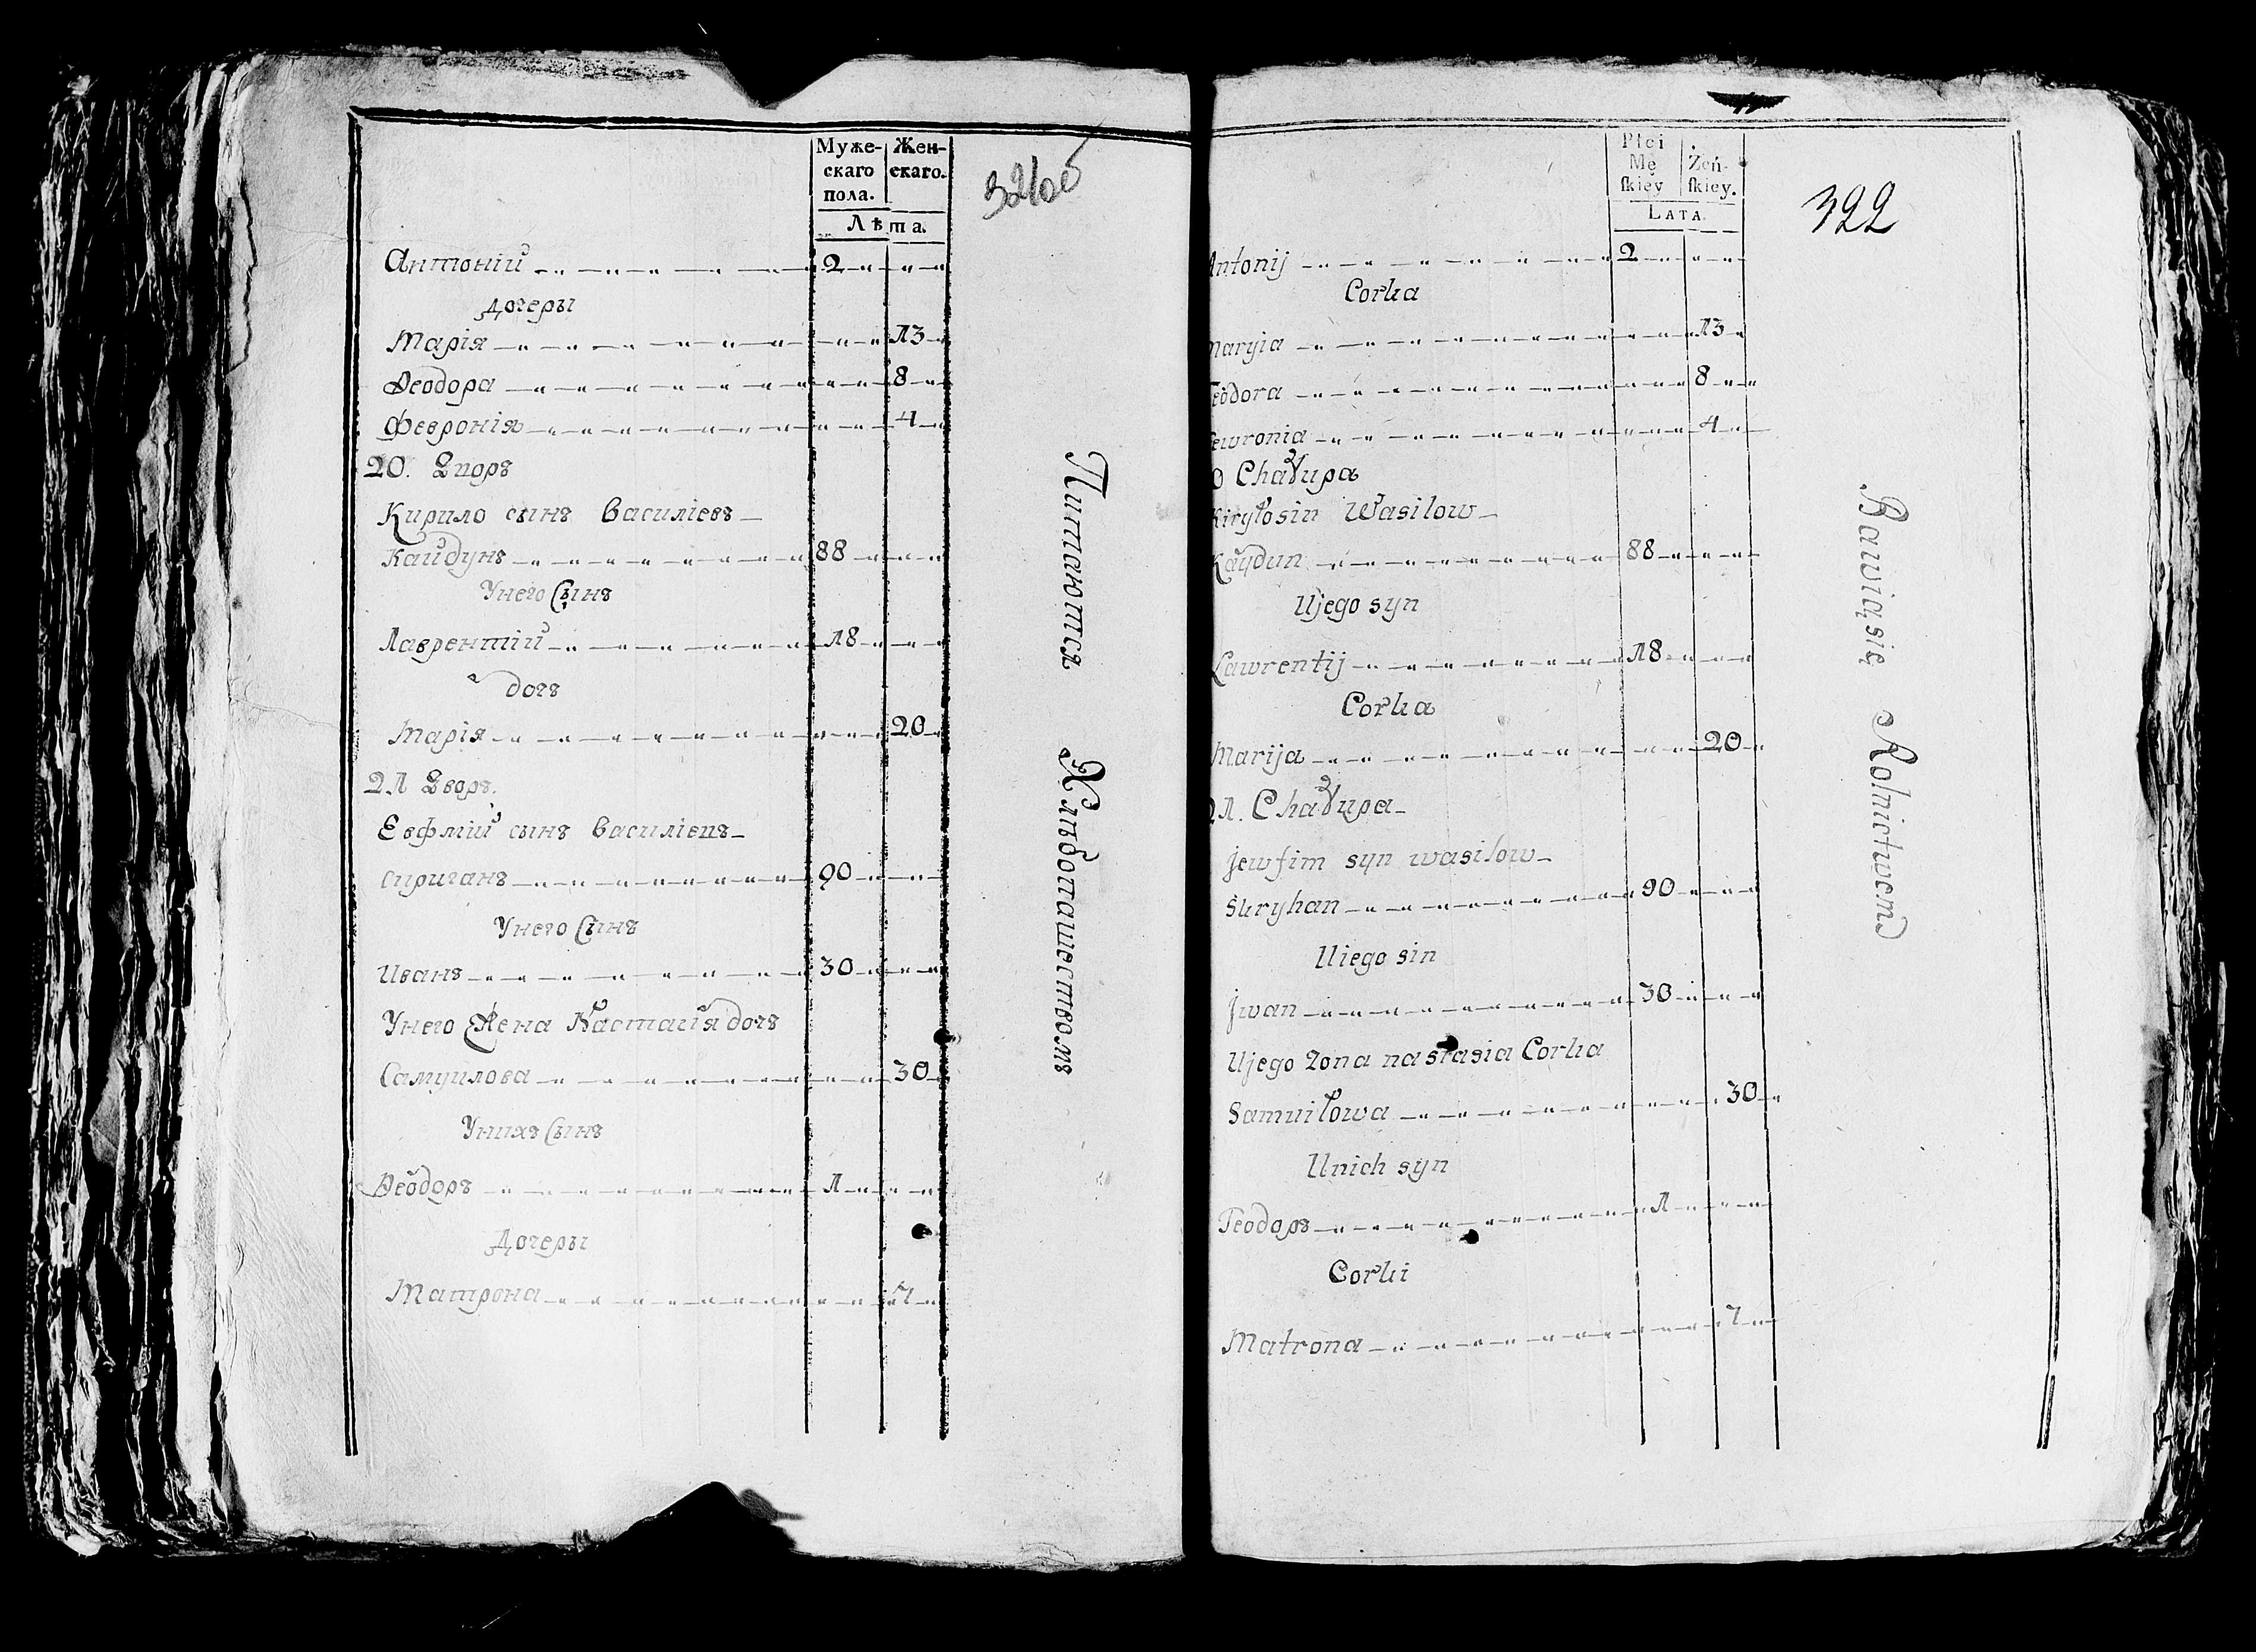 Муже-
скаго
пола.
Жен-
скаго.
Лѣта.
321об
Антоній 2
дочеры
Марія 13
Ѳеодора 8
Февронія 4
20. Дворъ
Кирило сынъ Василіевъ
Кайдунъ 88
Унего Сынъ
Лаврентій 18
дочъ
Марія 20
21 Дворъ.
Евфмій сынъ Василіевъ
90
Унего Сынъ
Иванъ 30
Унего Жена Настасія дочъ
Самуилова 30
Унихъ Сынъ
Ѳеодоръ 1
Дочеры
Матрона 7
Питаются Хлѣбопашествомъ
Płci
Mę
ſkiey
Żeń-
ſkiey.
LATA.
322
Antonij 2
Corka
Maryia 13
Teodora 8
Fewronia 4
0 Chałupa
Kiryło sin Wasilow
Kaydun 88
Ujego syn
Lawrentij 18
Corka
Marija 20
21. Chałupa
Jewfim syn wasilow
Skryhan 90
Uiego sin
Jwan 30
Ujego żona nastasia Corka
Samuiłowa 30
Unich syn
Теодоръ 1
Corki
Matrona 7
Bawiąsię Rolnictwem